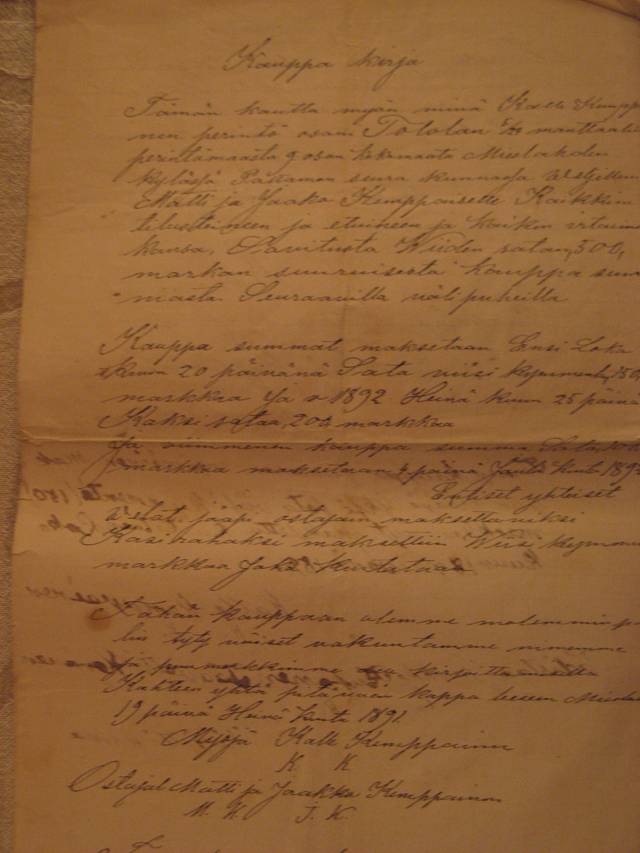 Kauppa kirja
Tämän kautta myön minä Kalle Kemppa
nen perintö osani Tololan manttaalin
perintömaasta 9 osan kokomaata Mieslahden
kylässä Paltamon seura kunnassa weljellen
Matti ja Jaako Kemppaiselle Kaikkiin
tiluksineen ja etuineen ja kaiken irtaim
kansa, Sowitusta Wiiden satan, 500,
markan suuruisesta kauppa sum
masta. Seuraavilla väli puheilla
Kauppa summat maksetaan Ensi Loka
kuun 20 päivänä Sata viisi kymmentä, 150,
markkaa Ja v 1892 Heinä kuun 25 päivä
Kaksi sataa, 200 markkaa
Ja viimmenen kauppa summa Sata
markkaa maksetaan päivä Joulukuuta 1892
Entiset yhteiset
welat jääpi ostajain maksettaviksi
Käsi rahaksi maksettiin Wiisi kymmen
markkaa Joka kuitataan
Tähän kauppaan olemme molemmin p
lin tyty wäiset vakuutamme nimemme
ja puu merkkimme kirjoittamisella
Kahteen yhtä pitävään kappa leesen Miesla
19 päivä Heinä kuuta 1891
Myöjä Kalle Kemppainen
K K
Ostajat Matti ja Jaakko Kemppainen
M. K. J. K.